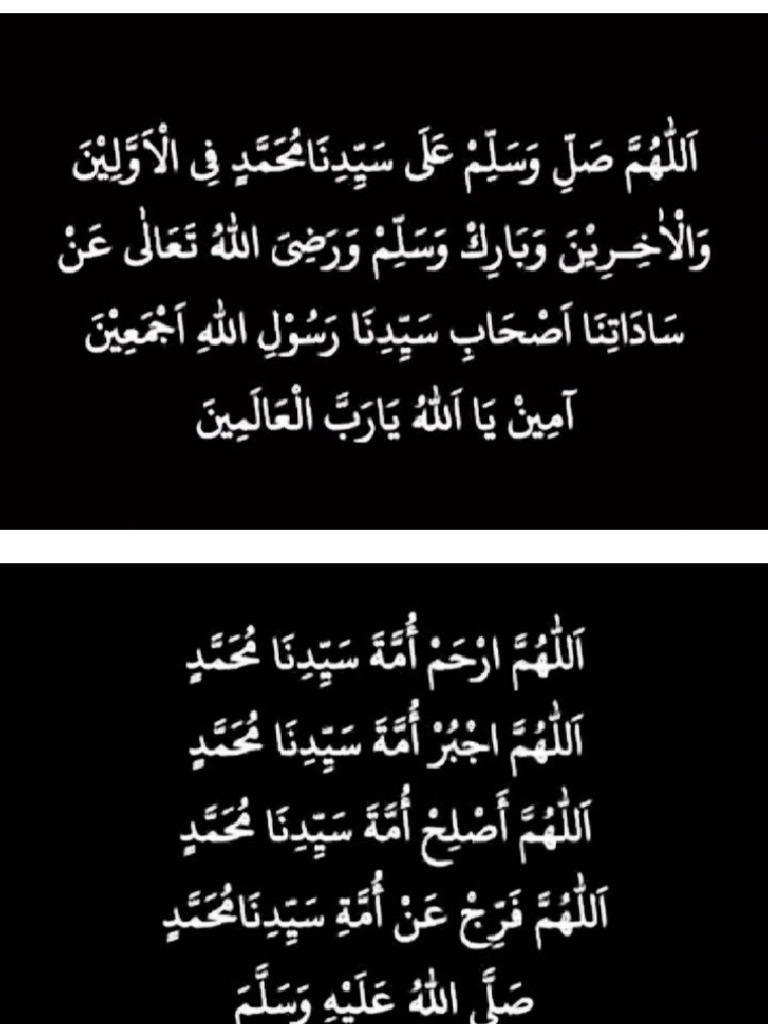 اَللّٰهُمَّ صَلِّ وَسَلِّمْ عَلَى سَيِّدِنَامُحَمَّدٍ فِى الْاَوَّلِيْنَ
وَالْاٰخِرِيْنَ وَبَارِكْ وَسَلِّمْ وَرَضِىَ اللهُ تَعَالٰى عَنْ
سَادَاتِنَا اَصْحَابِ سَيِّدِنَا رَسُوْلِ اللهِ اَجْمَعِيْنَ
آمِيْنْ يَا اَللهُ يَارَبَّ الْعَالَمِينَ
اَللّٰهُمَّ ارْحَمْ أُمَّةَ سَيِّدِنَا مُحَمَّدٍ
اَللّٰهُمَّ اجْبُرْ أُمَّةَ سَيِّدِنَا مُحَمَّدٍ
اَللّٰهُمَّ أَصْلِحْ أُمَّةَ سَيِّدِنَا مُحَمَّدٍ
اَللّٰهُمَّ فَرِّجْ عَنْ أُمَّةِ سَيِّدِنَامُحَمَّدٍ
صَلَّى اللهُ عَلَيْهِ وَسَلَّمَ